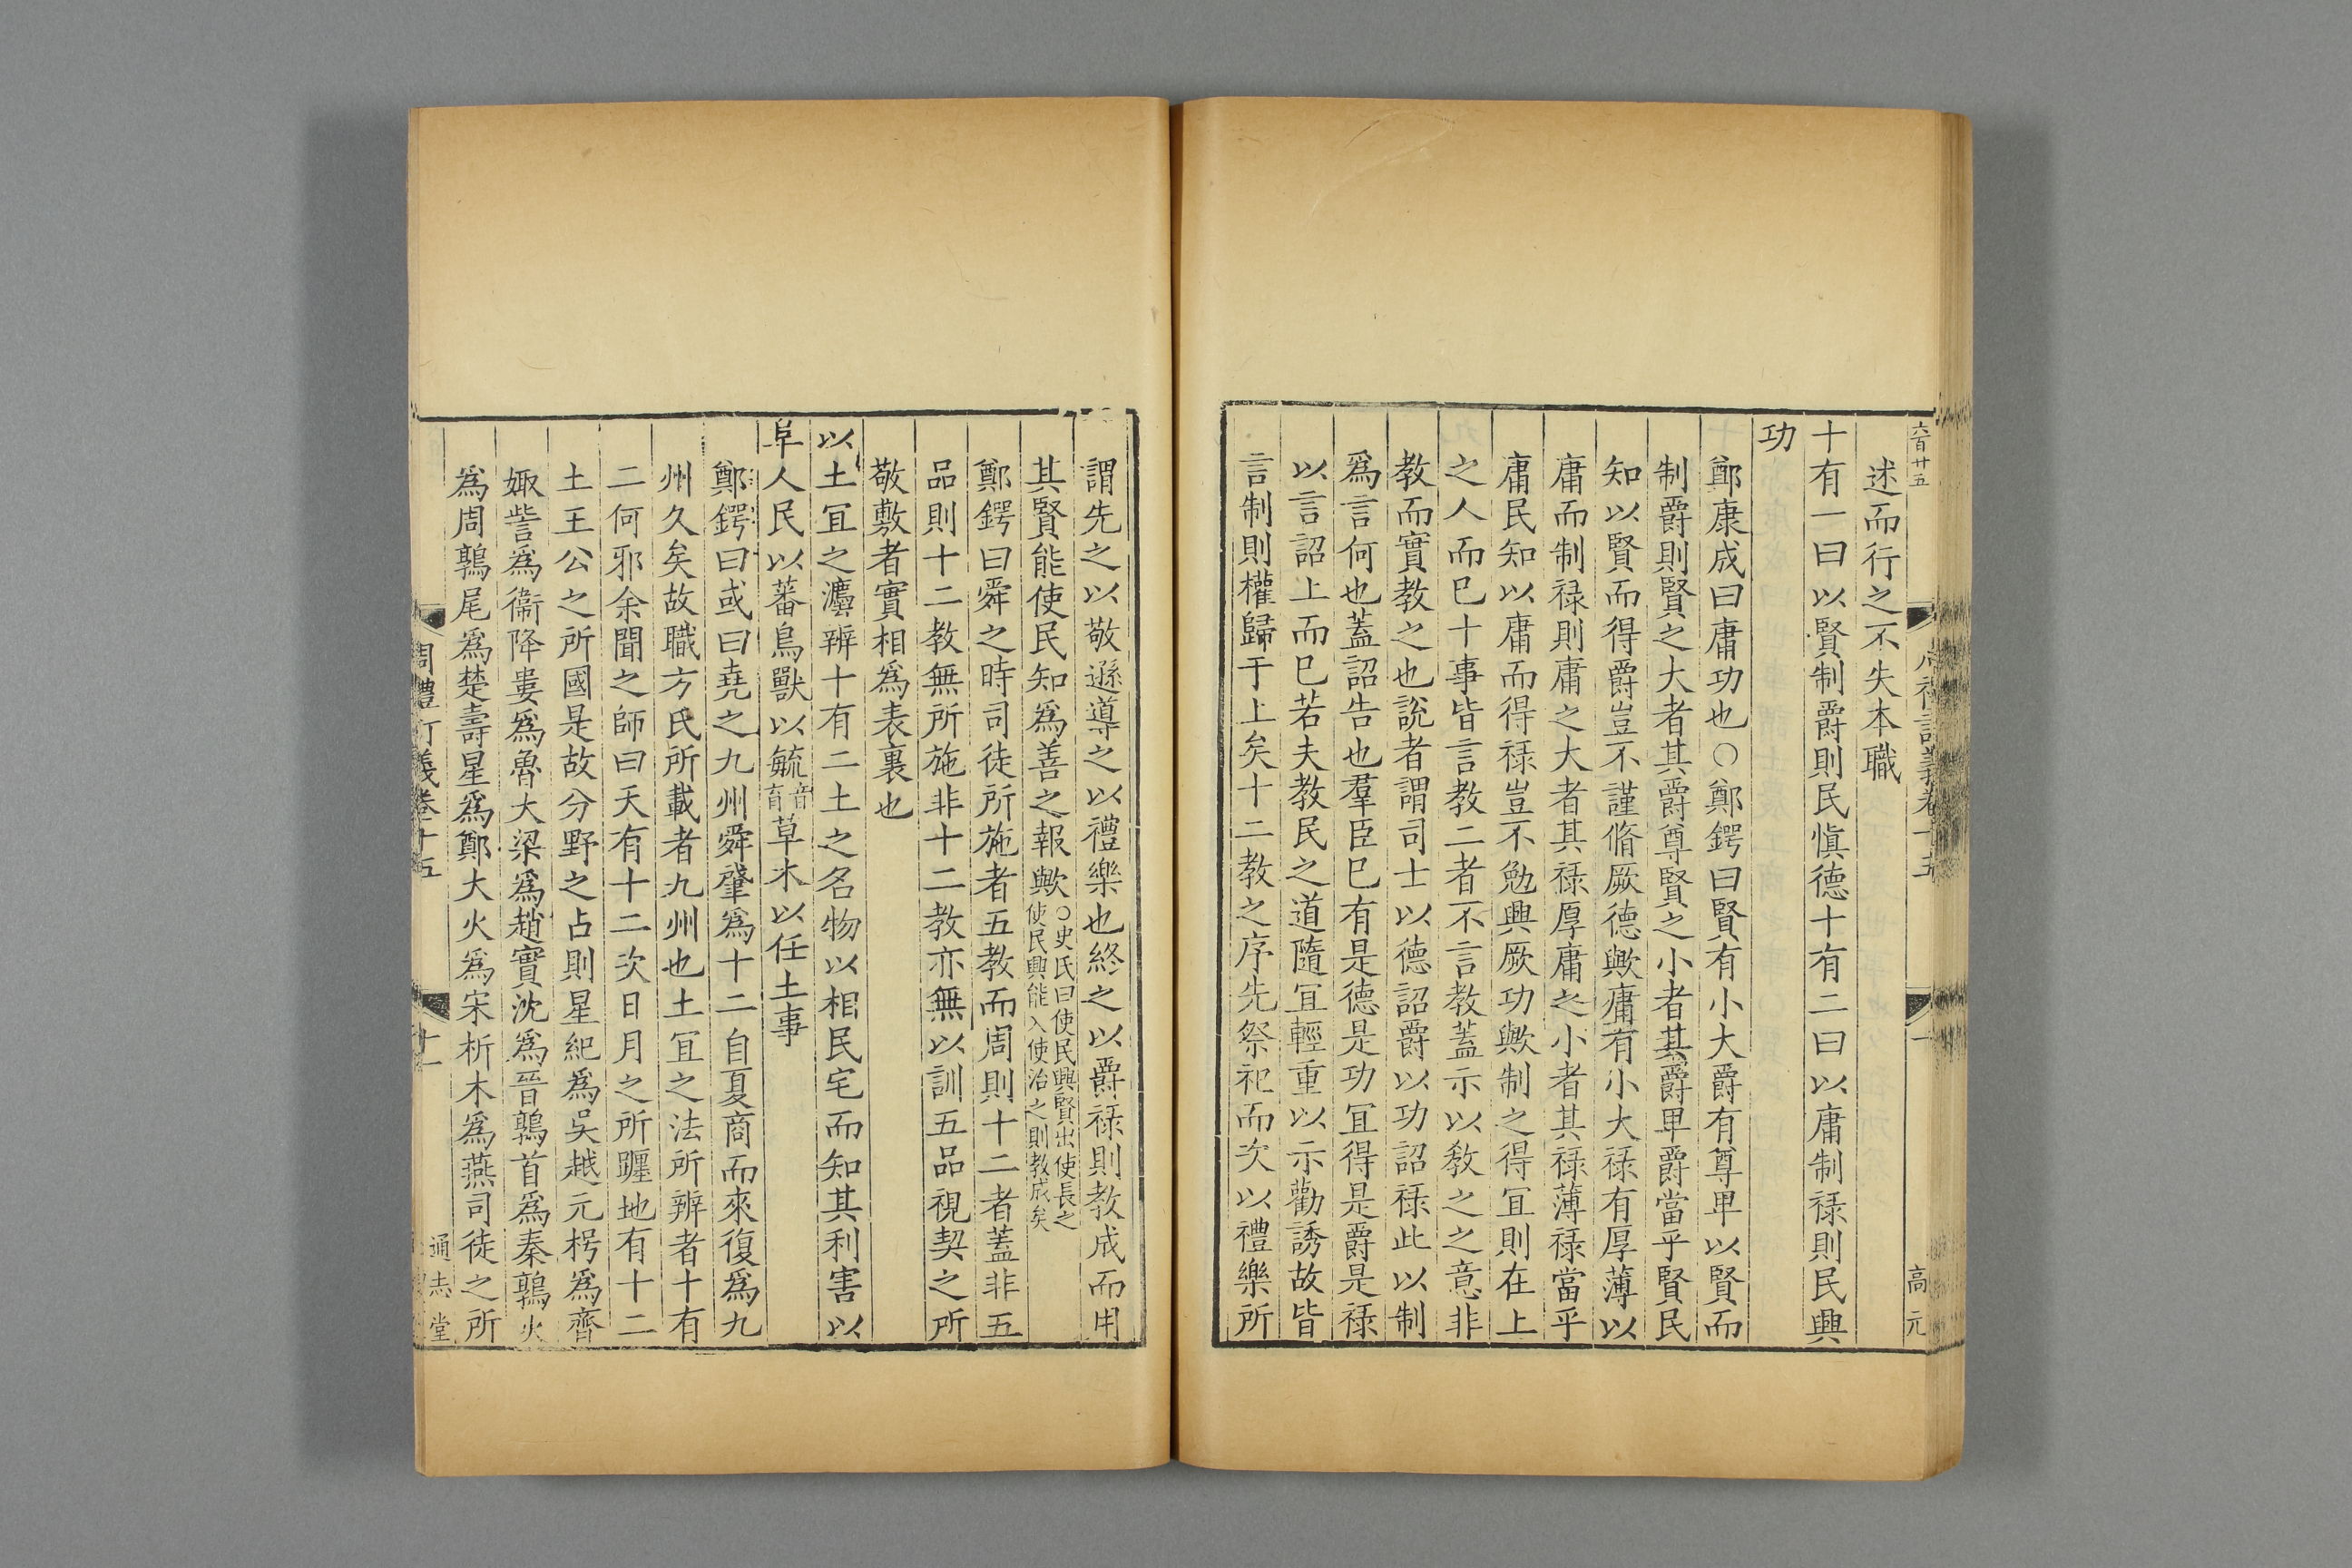 六百廿五
高元
述而行之不失本職
十有一曰以賢制爵則民愼德十有二曰以庸制祿則民興
功
鄭康成曰庸功也○鄭鍔曰賢有小大爵有尊卑以賢而
制爵則賢之大者其爵尊賢之小者其爵卑爵當乎賢民
知以賢而得爵豈不謹脩厥德歟庸有小大祿有厚薄以
庸而制祿則庸之大者其祿厚庸之小者其祿薄祿當乎
庸民知以庸而得祿豈不勉興厥功歟制之得宜則在上
之人而已十事皆言教二者不言教蓋示以敎之之意非
教而實教之也說者謂司士以德詔爵以功詔祿此以制
爲言何也蓋詔告也羣臣已有是德是功宜得是爵是祿
以言詔上而已若夫教民之道隨宜輕重以示勸誘故皆
言制則權歸于上矣十二教之序先祭祀而次以禮樂所
謂先之以敬遜導之以禮樂也終之以爵祿則教成而用
其賢能使民知爲善之報歟○史氏曰使民興賢出使長之
使民興能入使治之則教成矣
鄭鍔曰舜之時司徒所施者五教而周則十二者蓋非五
品則十二教無所施非十二教亦無以訓五品視契之所
敬敷者實相爲表裏也
以土宜之灋辨十有二土之名物以相民宅而知其利害以
阜人民以蕃鳥獸以毓音育草木以任土事
鄭鍔曰或曰堯之九州舜肇爲十二自夏商而來復爲九
州久矣故職方氏所載者九州也土宜之法所辨者十有
二何邪余聞之師曰天有十二次日月之所躔地有十二
土王公之所國是故分野之占則星紀爲吳越元枵爲齊
娵訾爲衞降婁爲魯大梁爲趙實沈爲晉鶉首爲秦鶉火
爲周鶉尾爲楚壽星爲鄭大火爲宋析木爲燕司徒之所
周禮訂義卷十五
十一
通志堂